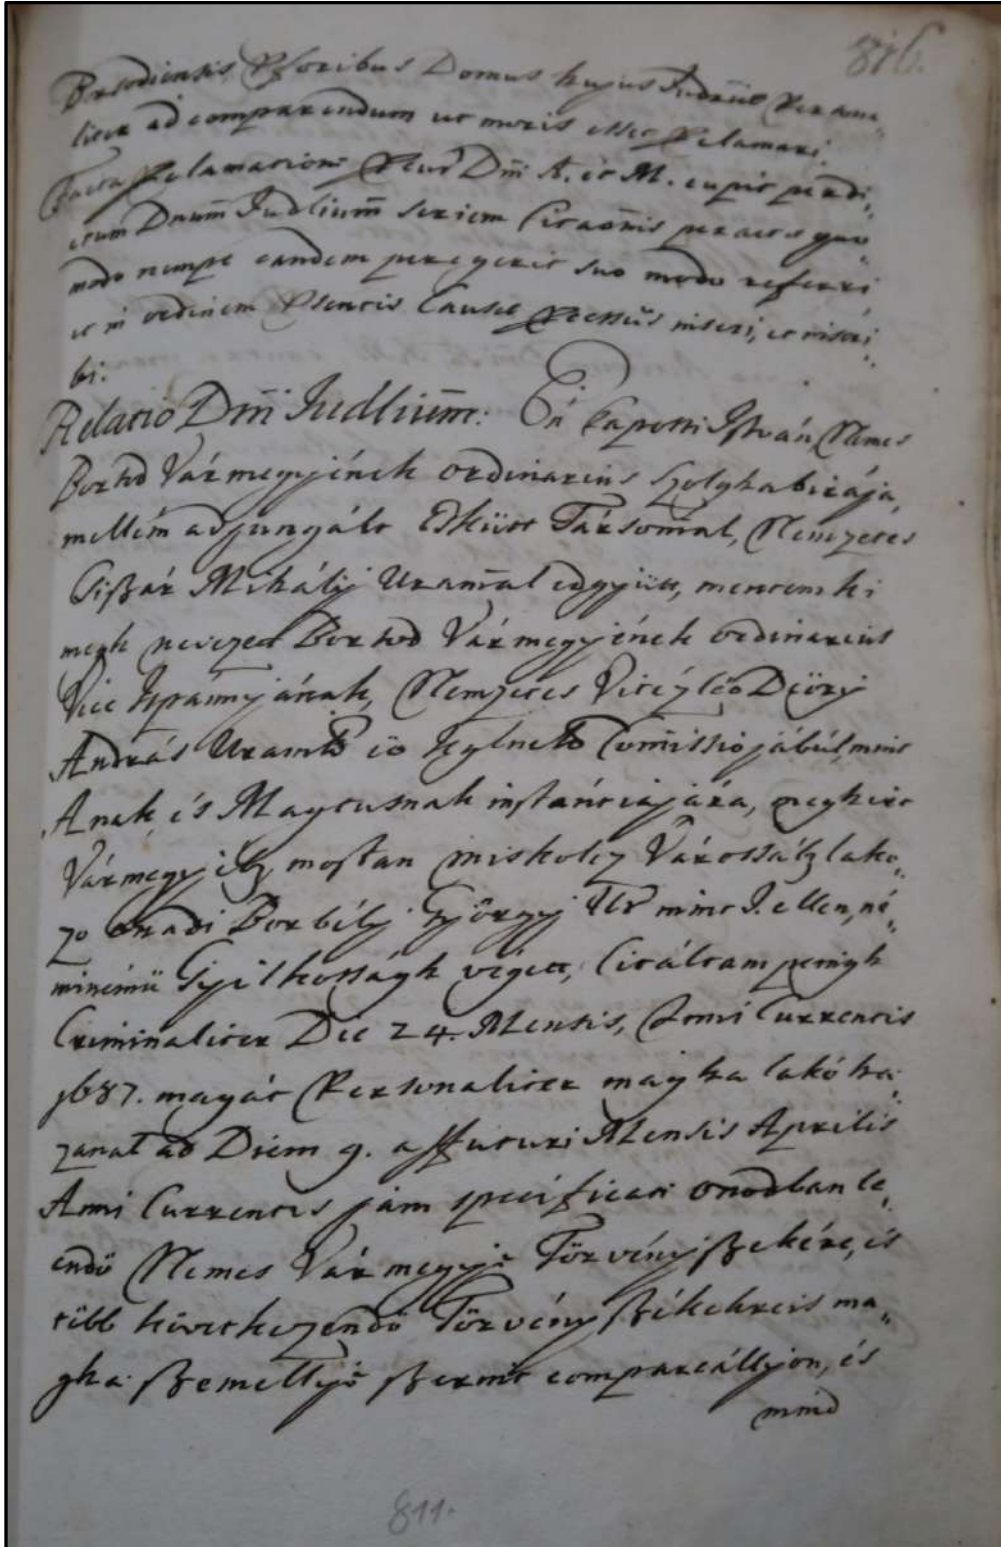 816.
Borsodiensis Pforibus Domus hujus Judriae Per ama„
liter ad comparendum ut moris esset Pclamari.
Facta Pclamatione Ptus Dni A. et M. cupit prædi„
ctum Dnum Judlium seriem Citaonis peractae quo
modo nempe eandem peregerit suo modo referri
et in ordinem Psentis Causae Pcessus inseri, et inscri„
bi:
Relatio Dni Judlium: Én Kapossi István Nemes
Borsod Vármegyjének ordinarius szolgkabirája,
mellém adjungált Esküdt Társommal, Nemzetes
Gißár Mihály Urammal edgyütt, mentem ki
megh nevezett Borsod Vármegyjének ordinarius
Vice Ispánnyjának, Nemzetes Vitézlő Dőry
András Uramk eő kglnek Commissiojábúl, mint
Anak, és Magtusnak instántiajára, megh irt
Vármegyjéb, mostan miskolcz Várossáb, lako„
zo onadi Borbély György Ur mint I. ellen, né„
minémü Gyilkosságh végett, Citáltam penigh
Criminaliter Die 24. Mensis, Anni Currentis
1687. magát Personaliter maga lakó há„
zanál ad Diem 9. affuturi Mensis Aprilis
Anni Currentis jam specificati onodban le„
endő Nemes Vármegyje Törvény ßekére, és
több következendő Törvény ßékekreis ma„
gha ßemellye ßerint compareállyon, és
mind
811.